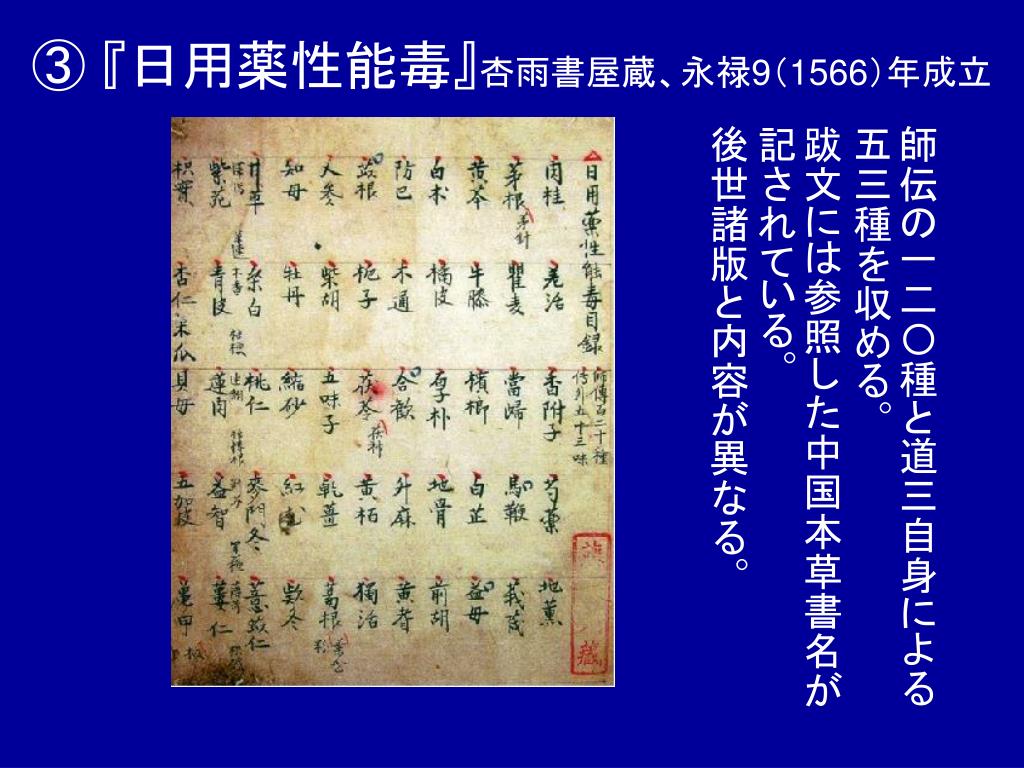 ③『日用薬性能毒』杏雨書屋蔵、永禄9（1566）年成立
師伝の一二〇種と道三自身による
五三種を収める。
跋文には参照した中国本草書名が
記されている。
後世諸版と内容が異なる。
日用薬性能毒目録
師傳百二十種
傳外五十三味
肉桂 羌活 香附子 芍藥 地薫
茅根 茅針 瞿麦 當帰 馬鞭 莪茂
黄芩 牛膝 檳榔 白芷 益母
白朮 橘皮 厚朴 地骨 前胡
防己 木通 合歓 升麻 黄耆
葛根 梔子 茯苓 茯神 黄栢 獨活
人参 柴胡 五味子 乾薑 葛根
知母 牡丹 縮砂 紅花 欵冬
甘草 桑白 桃仁 麥門冬 薏苡仁
紫菀 青皮 蓮肉 益智
枳實 杏仁 木瓜 貝母 五加皮 亀甲